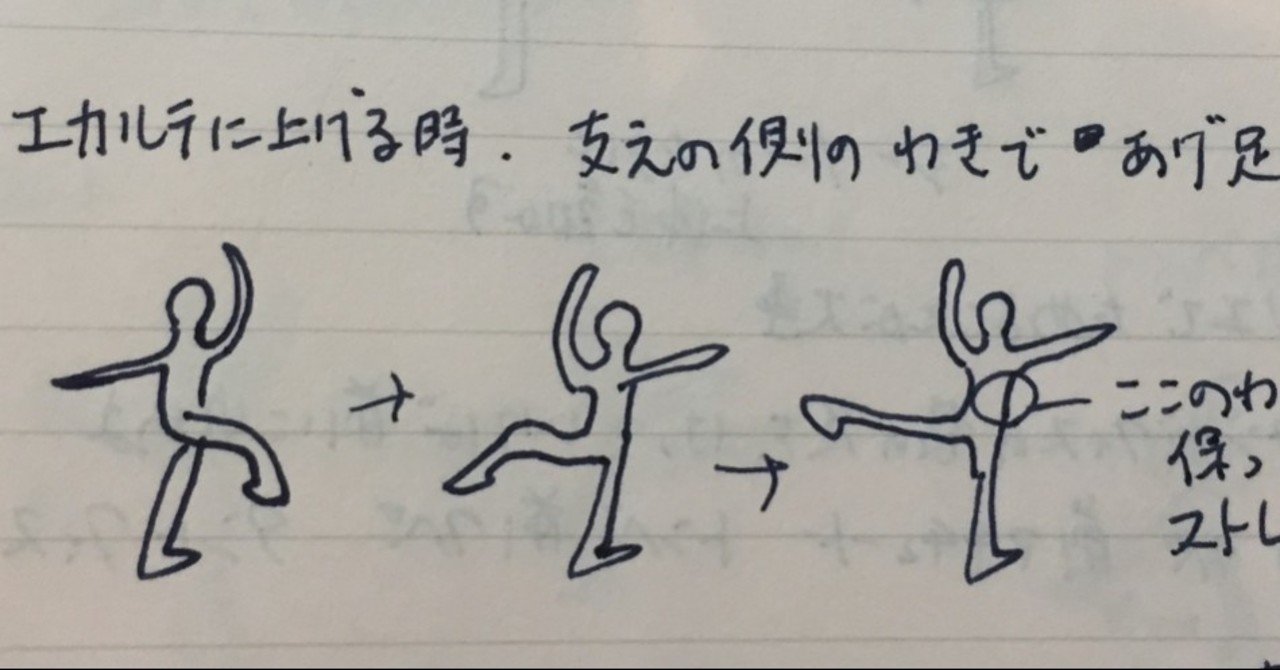 エカルテに上げる時. 支えの側のわきで あげ足
ここのわ
保っ
ストレ